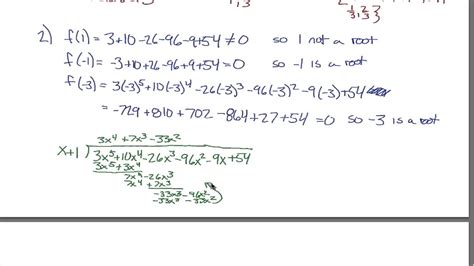 1, 3
1/3, 2/3 }
2) f(1) = 3+10-26-96-9+54 ≠ 0 so 1 not a root
f(-1) = -3+10+26-96+9+54=0 so -1 is a root
f(-3) = 3(-3)⁵+10(-3)⁴-26(-3)³-96(-3)²-9(-3)+54
= -729+810+702-864+27+54 =0 so -3 is a root
3x⁴+7x³-33x²
x+1 ) 3x⁵+10x⁴-26x³-96x²-9x+54
3x⁵+3x⁴
7x⁴-26x³
7x⁴+7x³
-33x³-96x²
-33x³-33x²